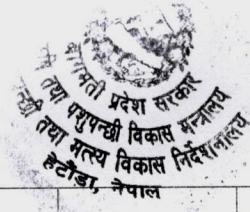 बागमती प्रदेश सरकार
तथा पशुपन्छी विकास मन्त्रालय
न्छी तथा मत्स्य विकास निर्देशनालय
हेटौंडा, नेपाल